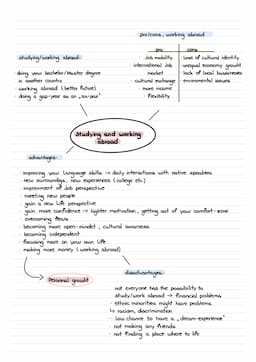 pro/cons, working abroad
pro
cons
studying/working abroad:
· Job mobility
· Loss of cultural identity
· international Job market
· unequal economy growth
· doing your bachelor/master degree in another country
· lack of local businesses
· cultural exchange
· enviromental issues
· working abroad (better future)
· more income
· doing a gap-year as an „au-pair"
· flexibility
Studying and working abroad
advantages:
· improving your language skills → daily interactions with native speakers
· new surroundings, new experiences (college etc.)
· improvement of job perspective
· meeting new people
· gain a new life perspective
· gain more confidence → higher motivation, getting out of your comfort-zone
· overcoming fears
· becoming more open-minded, cultural awareness
· becoming independent
· focusing more on your own life
· making more money (working abroad)
Personal growth
disadvantages:
· not everyone has the possibility to
study/work abroad → financial problems
· ethnic minorities might have problems
↳ racism, discrimination
· low chance to have a „dream-experience"
· not making any friends
· not finding a place where to life